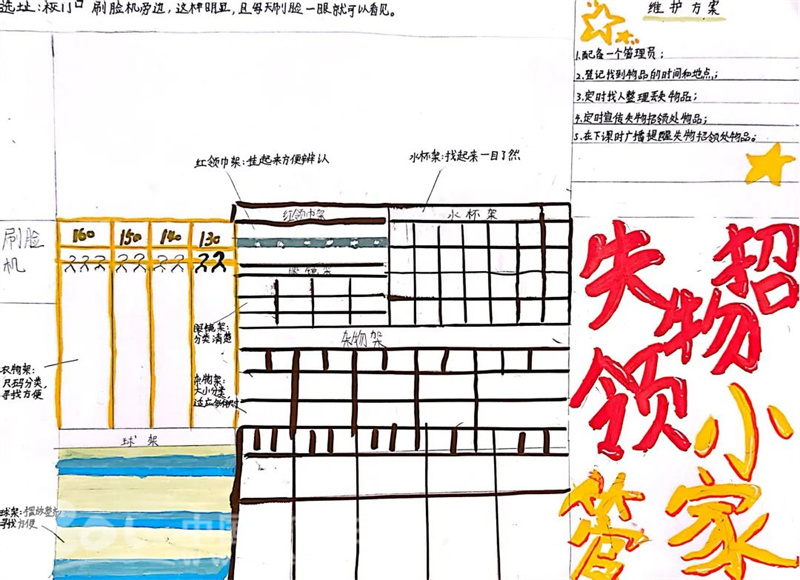 选址：校门口刷脸机旁边，这样明显，且每天刷脸一眼就可以看见。
维护方案
1.配备一个管理员；
2.登记找到物品的时间和地点；
3.定时找人整理丢失物品；
4.定时宣传失物招领处物品；
5.在下课时广播提醒失物招领处物品。
红领巾架：挂起来方便辨认
水杯架：找起来一目了然
刷脸机
160 150 140 130
红领巾架
水杯架
眼镜架
眼镜架：
分类清楚
杂物架
杂物架：
大小分类，
衣物架：
尺码分类，
寻找方便
球架
球架：
寻找方便
失物招领
小管家